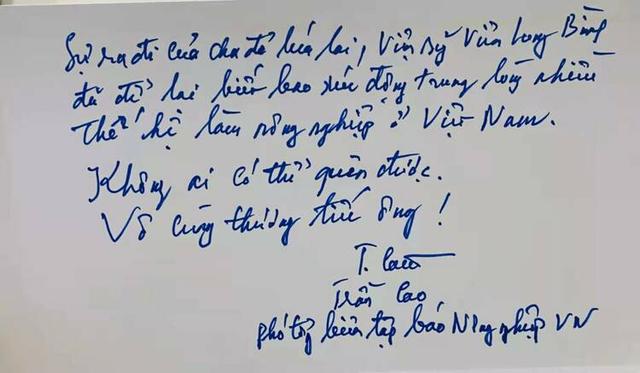 Sự ra đi của cha đẻ lúa lai, Viện sỹ Viên Long Bình
đã để lại biết bao xúc động trong lòng nhiều
thế hệ làm nông nghiệp ở Việt Nam.
Không ai có thể quên được.
Vô cùng thương tiếc ông!
T. Cao
Trần Cao
Phó tổng biên tập báo Nông nghiệp VN